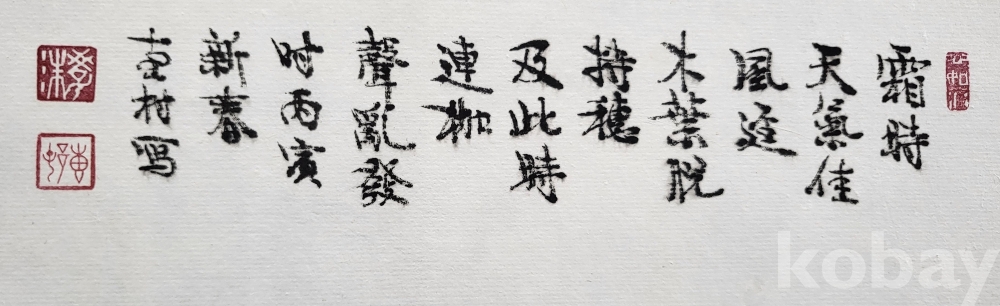 霜時
天氣佳
風逕
木葉脫
持穗
及此時
連枷
聲亂發
时丙寅
新春
村写
kobay